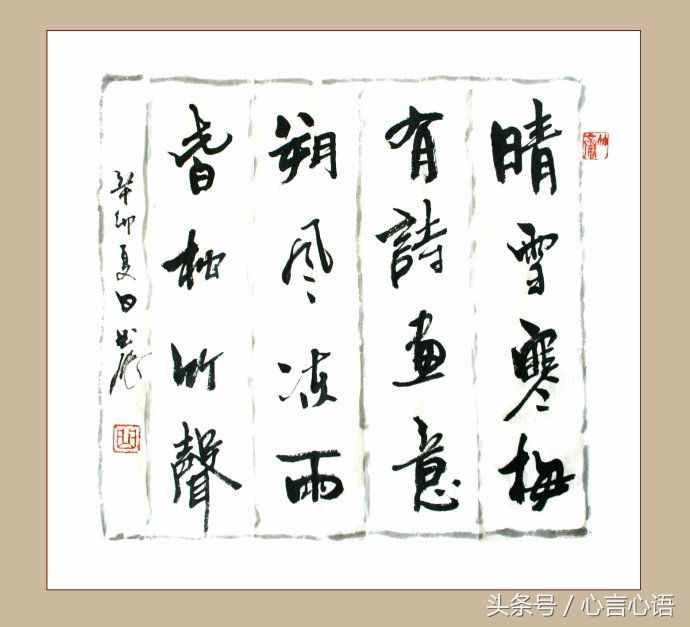 晴雪寒梅
有詩畫意
朔風凍雨
皆松竹聲
辛卯夏日
头条号 / 心言心语